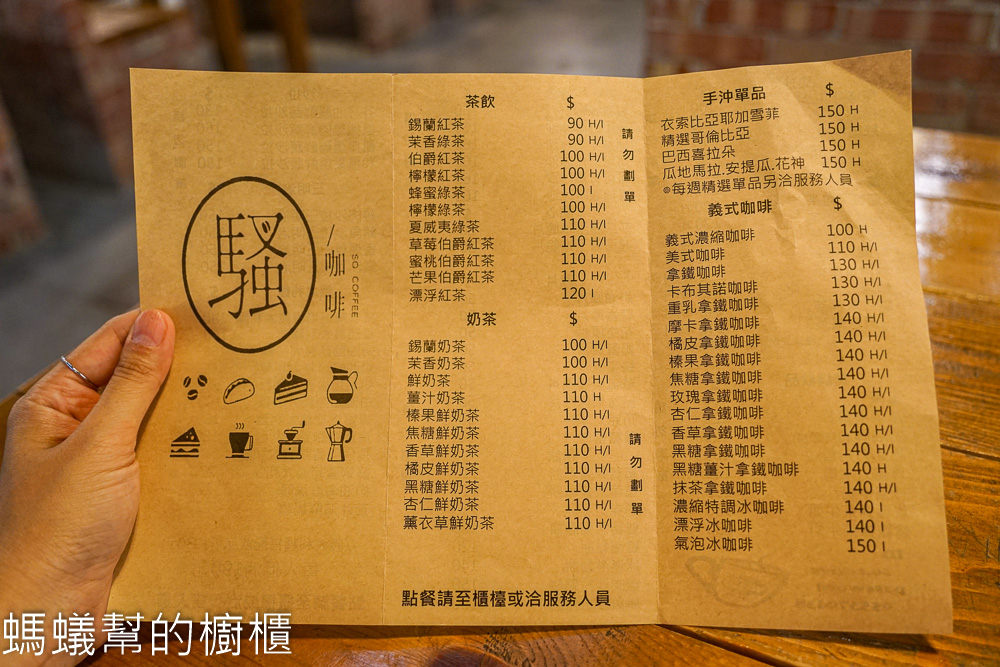 騷
/咖啡
SO COFFEE
茶飲 $
錫蘭紅茶 90 H/I
茉香綠茶 90 H/I
伯爵紅茶 100 H/I
檸檬紅茶 100 H/I
蜂蜜綠茶 100 I
檸檬綠茶 100 H/I
夏威夷綠茶 110 H/I
草莓伯爵紅茶 110 H/I
蜜桃伯爵紅茶 110 H/I
芒果伯爵紅茶 110 H/I
漂浮紅茶 120 I
請勿劃單
奶茶 $
錫蘭奶茶 100 H/I
茉香奶茶 100 H/I
鮮奶茶 110 H/I
薑汁奶茶 110 H
榛果鮮奶茶 110 H/I
焦糖鮮奶茶 110 H/I
香草鮮奶茶 110 H/I
橘皮鮮奶茶 110 H/I
黑糖鮮奶茶 110 H/I
杏仁鮮奶茶 110 H/I
薰衣草鮮奶茶 110 H/I
請勿劃單
點餐請至櫃檯或洽服務人員
手沖單品 $
衣索比亞耶加雪菲 150 H
精選哥倫比亞 150 H
巴西喜拉朵 150 H
瓜地馬拉.安提瓜.花神 150 H
◎每週精選單品另洽服務人員
義式咖啡 $
義式濃縮咖啡 100 H
美式咖啡 110 H/I
拿鐵咖啡 130 H/I
卡布其諾咖啡 130 H/I
重乳拿鐵咖啡 130 H/I
摩卡拿鐵咖啡 140 H/I
橘皮拿鐵咖啡 140 H/I
榛果拿鐵咖啡 140 H/I
焦糖拿鐵咖啡 140 H/I
玫瑰拿鐵咖啡 140 H/I
杏仁拿鐵咖啡 140 H/I
香草拿鐵咖啡 140 H/I
黑糖拿鐵咖啡 140 H/I
黑糖薑汁拿鐵咖啡 140 H
抹茶拿鐵咖啡 140 H/I
濃縮特調冰咖啡 140 I
漂浮冰咖啡 140 I
氣泡冰咖啡 150 I
螞蟻幫的櫥櫃